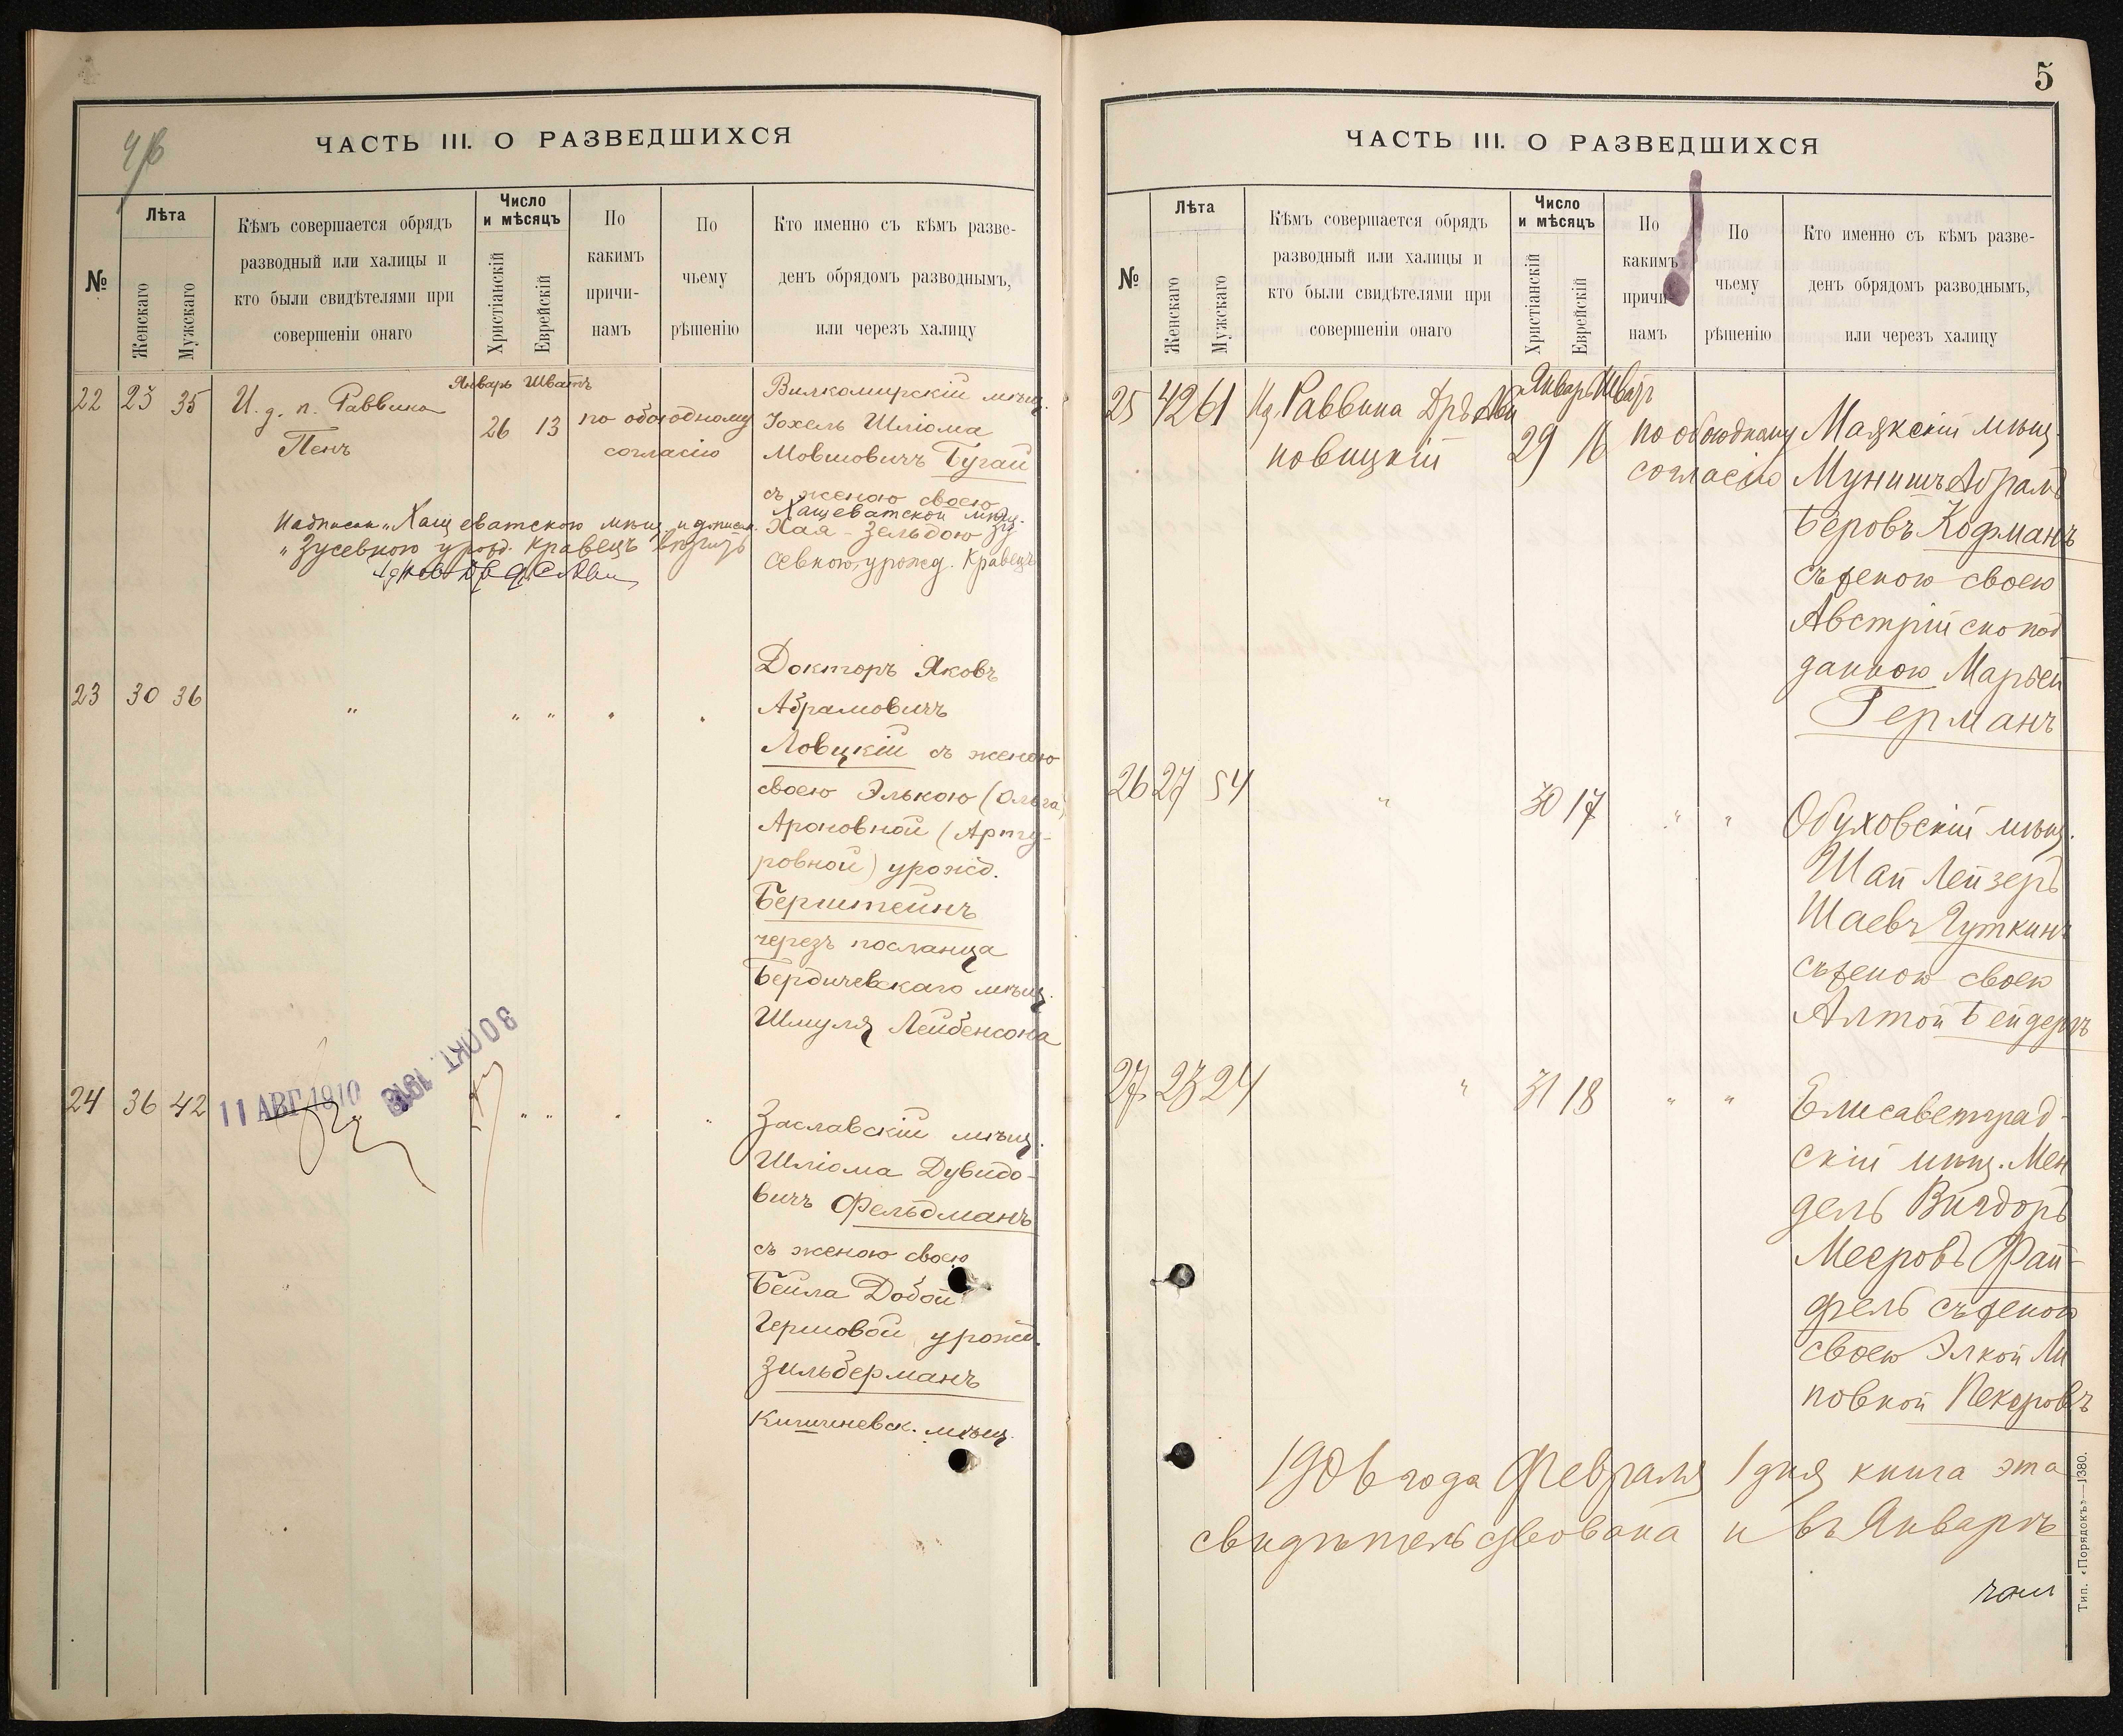 4/6
ЧАСТЬ III. О РАЗВЕДШИХСЯ
№
Лѣта
Женскаго
Мужскаго
Кѣмъ совершается обрядъ
разводный или халицы и
кто были свидѣтелями при
совершеніи онаго
Число
и мѣсяцъ
Христіанскій
Еврейскій
По
какимъ
причи-
намъ
По
чьему
рѣшенію
Кто именно съ кѣмъ разве-
денъ обрядомъ разводнымъ,
или черезъ халицу
22 23 35 И. д. п. Раввина
Пенъ
Январь Шватъ
26 13
по обоюдному
согласію
Вилкомирскій мѣщ.
Іохель Шліома
Мовшовичъ Бугай
съ женою своею
Хащеватской мѣщ.
Хая-Зельдою Зу
севною, урожд. Кравецъ
Надписан. „Хащеватскою мѣщ. и дописан.
„Зусевною урожд. Кравецъ
23 30 36 " " " " "
Докторъ Яковъ
Абрамовичъ
Ловцкій съ женою
своею Элькою (Ольга)
Ароновной (Арту-
ровной) урожд.
Бернштейнъ
черезъ посланца
Бердичевскаго мѣщ.
Шмуля Лейбенсона
24 36 42 " " " "
11 АВГ 1910
30 ОКТ. 1913
Заславскій мѣщ.
Шліома Дувидо-
вичъ Фельдманъ
съ женою своею
Бейла Добой
Гершовой, урожд.
Зильберманъ
Кишиневск. мѣщ.
5
ЧАСТЬ III. О РАЗВЕДШИХСЯ
№
Лѣта
Женскаго
Мужскаго
Кѣмъ совершается обрядъ
разводный или халицы и
кто были свидѣтелями при
совершеніи онаго
Число
и мѣсяцъ
Христіанскій
Еврейскій
По
какимъ
причи-
намъ
По
чьему
рѣшенію
Кто именно съ кѣмъ разве-
денъ обрядомъ разводнымъ,
или черезъ халицу
25 42 61 Раввина Дръ Ави
новицкій
Январь Шватъ
29 16
по обоюдному
согласію
Маякскій мѣщ.
Мунишъ Абрамъ
Беровъ Кофманъ
съ женою своею
Австрійско под
данною Марьей
Германъ
26 27 54 " 30 17 " "
Обуховскій мѣщ.
Шай Лейзеръ
Шаевъ Гуткинъ
съ женою своею
Алтой Бейдеръ
27 23 24 " 31 18 " "
Елисаветград-
скій мѣщ. Мен
дель Вигдоръ
Мееровъ Фай-
фель съ женою
своею Элкой Ли
повной Пекаровъ
1906 года Февраля 1 дня книга эта
свидѣтельствована и въ Январѣ
Тип. «Порядокъ»—1380.